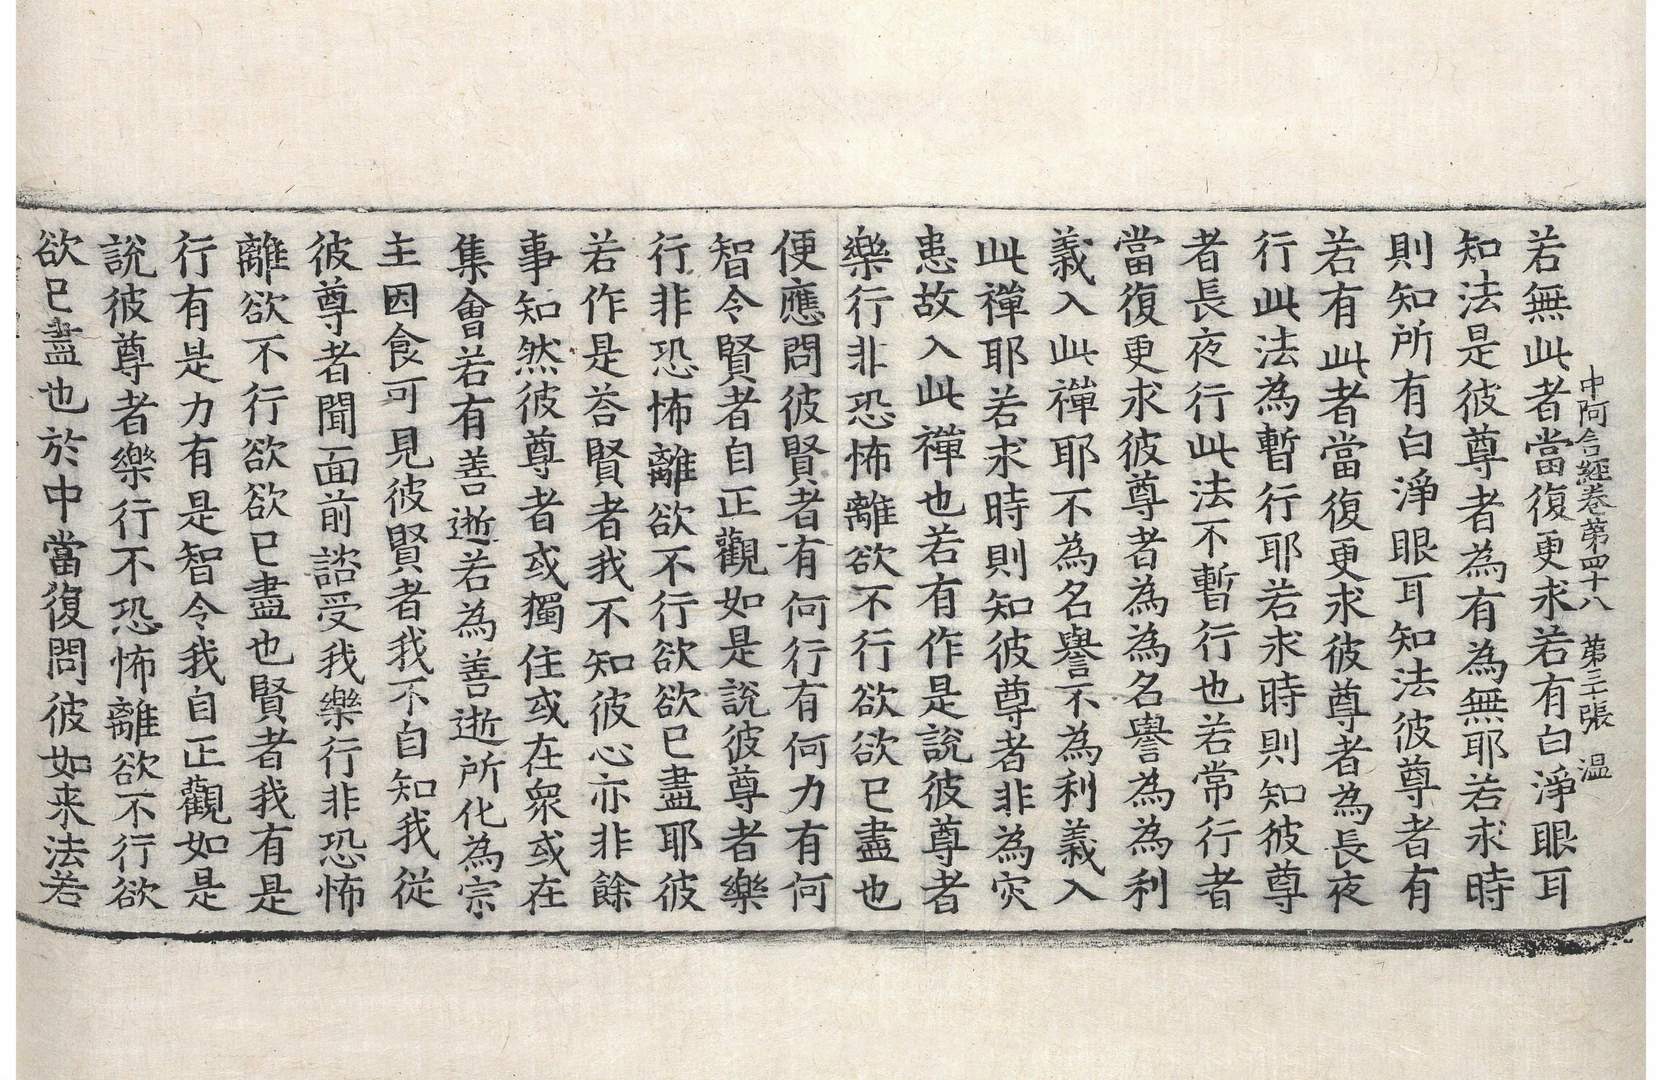 中阿含經卷第四十八 第三張 温
若無此者當復更求若有白淨眼耳
知法是彼尊者為有為無耶若求時
則知所有白淨眼耳知法彼尊者有
若有此者當復更求彼尊者為長夜
行此法為暫行耶若求時則知彼尊
者長夜行此法不暫行也若常行者
當復更求彼尊者為為名譽為為利
義入此禪耶不為名譽不為利義入
此禪耶若求時則知彼尊者非為灾
患故入此禪也若有作是說彼尊者
樂行非恐怖離欲不行欲欲已盡也
便應問彼賢者有何行有何力有何
智令賢者自正觀如是說彼尊者樂
行非恐怖離欲不行欲欲已盡耶彼
若作是荅賢者我不知彼心亦非餘
事知然彼尊者或獨住或在衆或在
集會若有善逝若為善逝所化為宗
主因食可見彼賢者我不自知我從
彼尊者聞面前諮受我樂行非恐怖
離欲不行欲欲已盡也賢者我有是
行有是力有是智令我自正觀如是
說彼尊者樂行不恐怖離欲不行欲
欲已盡也於中當復問彼如来法若